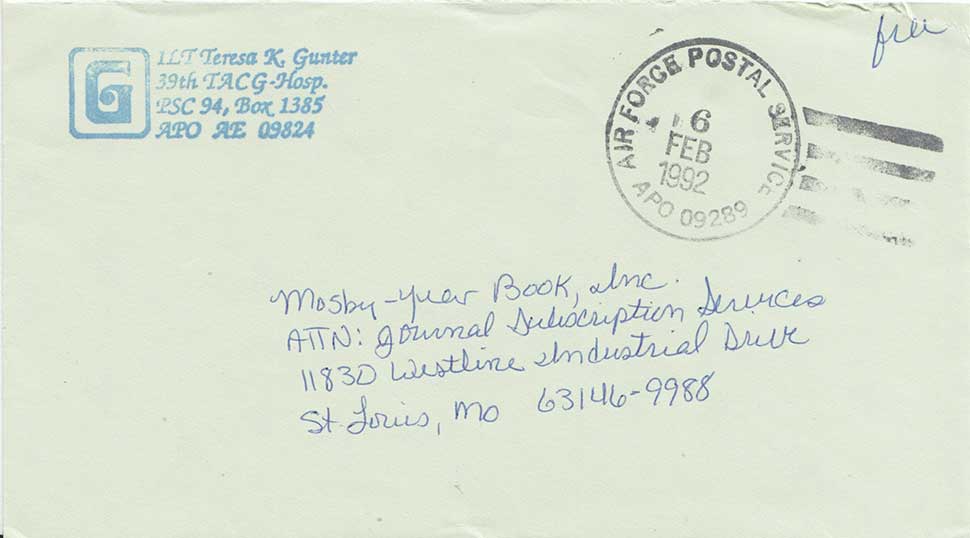 free
G
1LT Teresa K. Gunter
39th TACG-Hosp.
PSC 94, Box 1385
APO AE 09824
AIR FORCE POSTAL SERVICE
6
FEB
1992
APO 09289
Mosby-Year Book, Inc.
ATTN: Journal Subscription Services
11830 Westline Industrial Drive
St. Louis, Mo 63146-9988